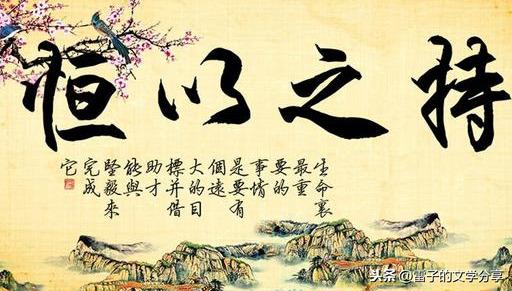 持之以恒
生命裏
最重
要的
事情
是要有
個遠
大的目
標并借
助才
能與
堅毅來
完成
它
头条 @雷子的文学分享